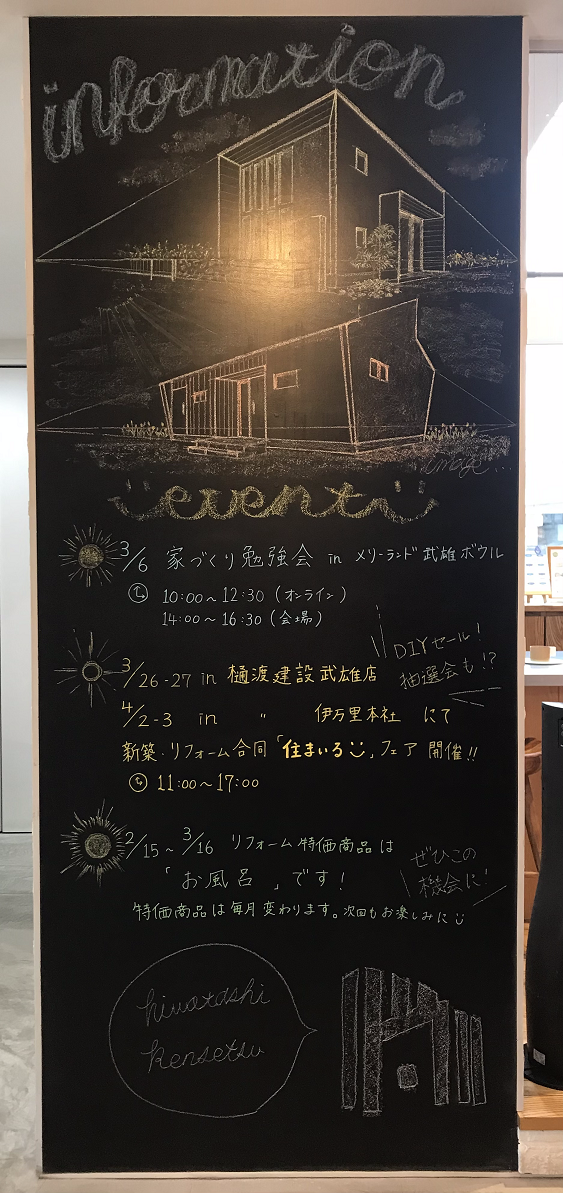 information
image...
event
3/6 家づくり勉強会 in メリーランド武雄ボウル
10:00~12:30 (オンライン)
14:00~16:30 (会場)
DIYセール!
抽選会も!?
3/26-27 in 樋渡建設武雄店
4/2-3 in 〃 伊万里本社 にて
新築・リフォーム合同「住まいる」フェア 開催!!
11:00~17:00
2/15~3/16 リフォーム特価商品は
「お風呂」です!
ぜひこの
機会に!
特価商品は毎月変わります。次回もお楽しみに
hiwatashi
kensetsu